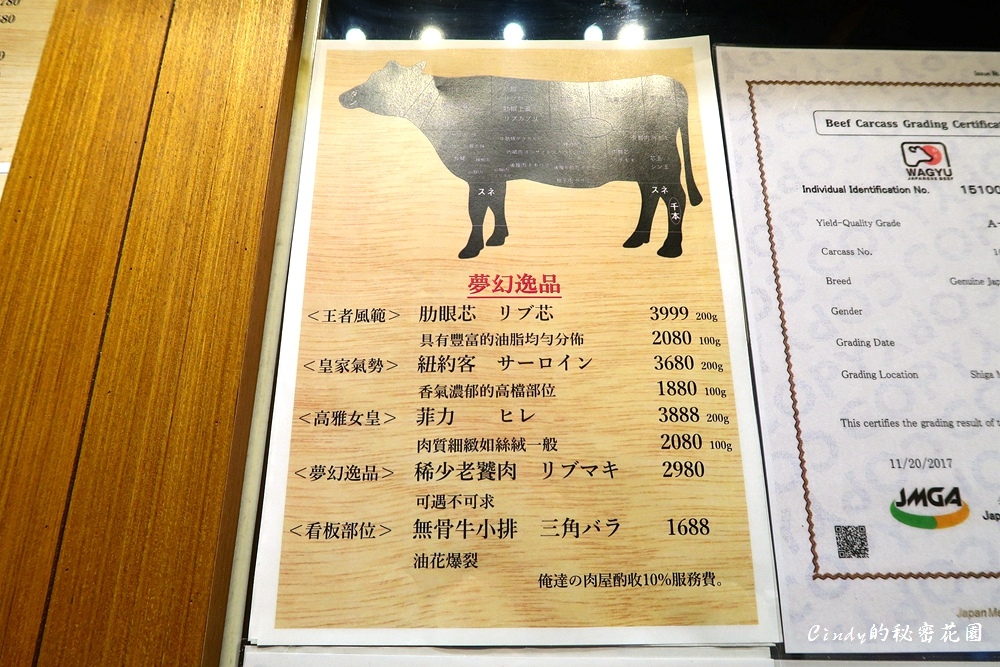 スネ
スネ
千本
夢幻逸品
＜王者風範＞ 肋眼芯 リブ芯 3999 200g
具有豐富的油脂均勻分佈 2080 100g
＜皇家氣勢＞ 紐約客 サーロイン 3680 200g
香氣濃郁的高檔部位 1880 100g
＜高雅女皇＞ 菲力 ヒレ 3888 200g
肉質細緻如絲絨一般 2080 100g
＜夢幻逸品＞ 稀少老饕肉 リブマキ 2980
可遇不可求
＜看板部位＞ 無骨牛小排 三角バラ 1688
油花爆裂
俺達の肉屋酌收10%服務費。
Beef Carcass Grading
WAGYU
JAPANESE BEEF
Individual Identification No.
Yield-Quality Grade
Carcass No.
Breed Genuine
Gender
Grading Date
Grading Location Shiga
This certifies the grading result of
11/20/2017
JMGA
Japan
Cindy的秘密花園